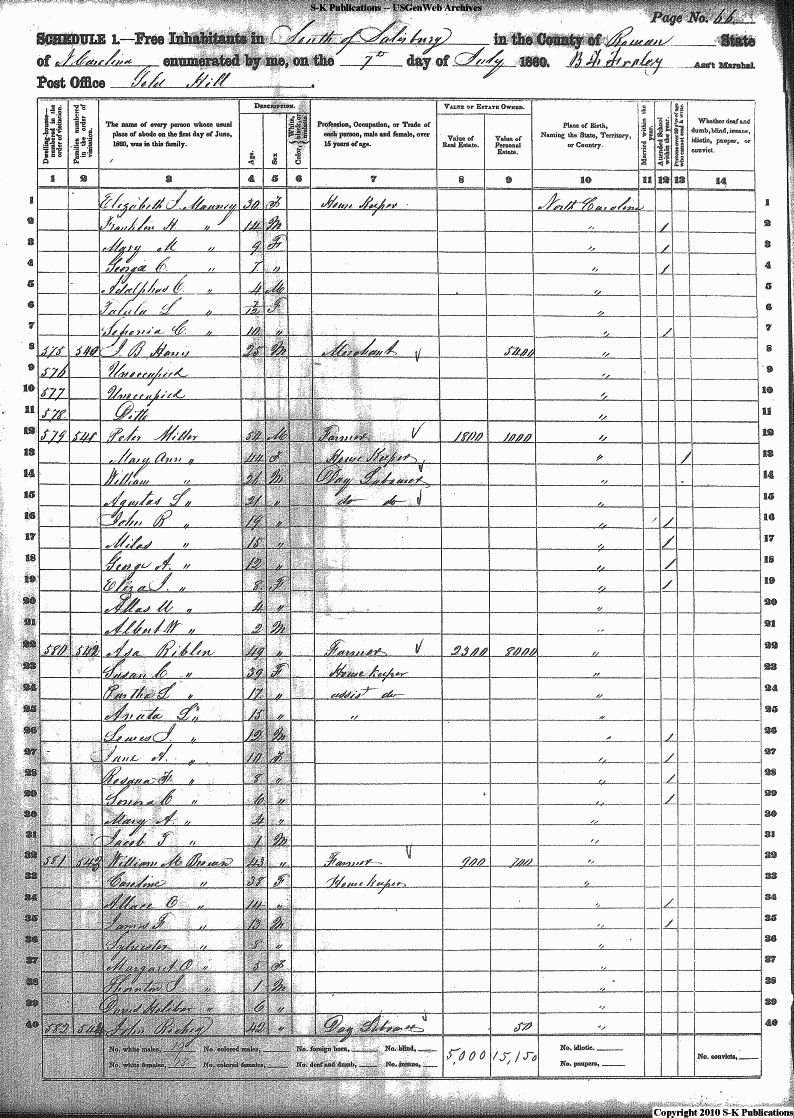 S-K Publications – USGenWeb Archives
Page No. 66
SCHEDULE 1.—Free Inhabitants in South of Salisbury in the County of Rowan State
of N Carolina enumerated by me, on the 7th day of July 1860. Ass't Marshal.
Post Office Gold Hill
Dwelling-houses—numbered in the order of visitation.
Families numbered in the order of visitation.
The name of every person whose usual place of abode on the first day of June, 1860, was in this family.
DESCRIPTION.
Age.
Sex
Color, White, black, or mulatto.
Profession, Occupation, or Trade of each person, male and female, over 15 years of age.
VALUE OF ESTATE OWNED.
Value of Real Estate.
Value of Personal Estate.
Place of Birth, Naming the State, Territory, or Country.
Married within the year.
Attended School within the year.
Persons over 20 y'rs of age who cannot read & write.
Whether deaf and dumb, blind, insane, idiotic, pauper, or convict.
1 2 3 4 5 6 7 8 9 10 11 12 13 14
1 Elizabeth J. Mauney 30 F House Keeper North Carolina 1
2 Franklin H " 14 M " / 2
3 Mary M " 9 F " / 3
4 George C. " 7 " " / 4
5 Adolphus C. " 4 M " 5
6 Talula L " 7/12 F " 6
7 C. " 10 " " / 7
8 575 540 J B 25 M Merchant 5400 " 8
9 576 Unoccupied " 9
10 577 Unoccupied " 10
11 578 Ditto " 11
12 579 541 Peter Miller 54 M Farmer 1800 1000 " 12
13 Mary Ann " 44 F House Keeper " / 13
14 William " 21 M Day Laborer " 14
15 Agustas L " 21 " do do " 15
16 John R " 19 " " / 16
17 Milas " 15 " " / 17
18 George A. " 12 " " / 18
19 Eliza J. " 8 F " / 19
20 " 4 " " 20
21 Albert W " 2 M " 21
22 580 542 Asa Riblen 49 " Farmer 2300 8000 " 22
23 Susan C " 39 F House Keeper " 23
24 L " 17 " assist do " 24
25 L " 15 " " " 25
26 Lewis J. " 12 M " / 26
27 Jane A. " 10 F " / 27
28 Rosana F " 8 " " / 28
29 C " 6 " " / 29
30 Mary A. " 4 " " 30
31 Jacob T " 1 M " 31
32 581 543 William M Brown 43 " Farmer 900 700 " 32
33 Caroline " 38 F House Keeper " 33
34 C " 14 " " / 34
35 James F " 13 M " / 35
36 " 8 " " 36
37 Margaret O " 5 F " 37
38 Thornton J " 1 M " 38
39 David " 6 " " 39
40 582 544 John 42 " Day Laborer 50 " 40
No. white males, No. colored males, No. foreign born, No. blind, 5,000 15,150 No. idiotic.
No. white females, No. colored females, No. deaf and dumb, No. insane, No. paupers, No. convicts,
Copyright 2010 S-K Publications